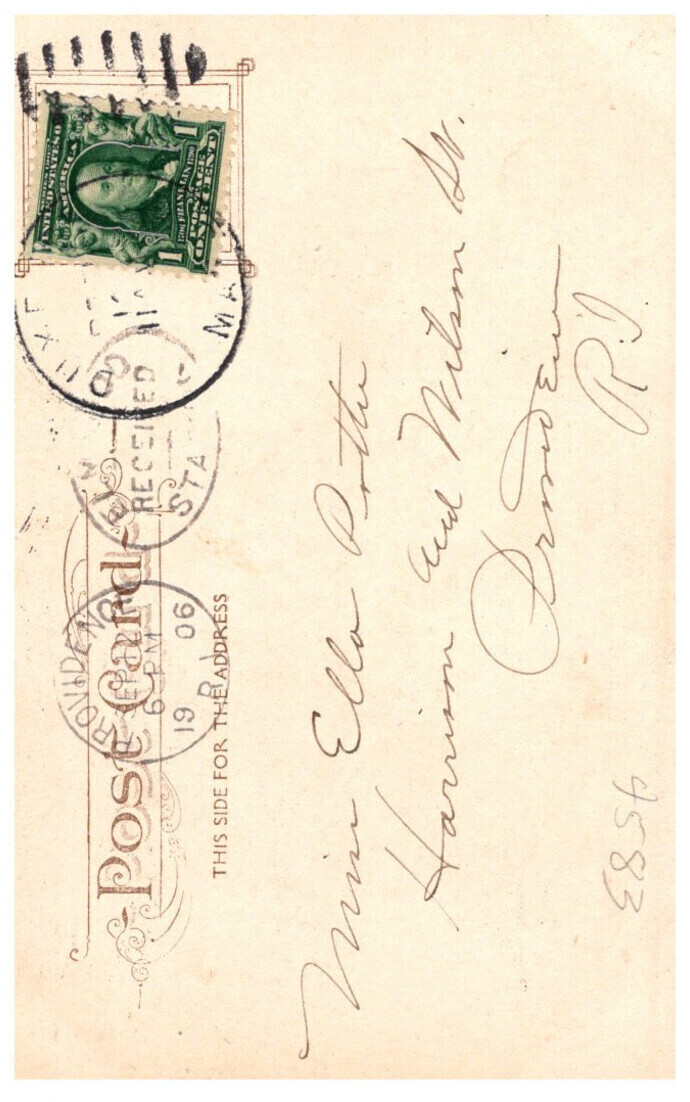 Post Card
THIS SIDE FOR THE ADDRESS
SERIES 1902
UNITED STATES OF
AMERICA
1706 FRANKLIN 1790
POSTAGE
1 ONE CENT 1
MA
RECEIVED
STA
PROVIDENCE
6 PM
19 06
R. I.
Miss Ella
Harrison and Wilson St.
Providence
R.I.